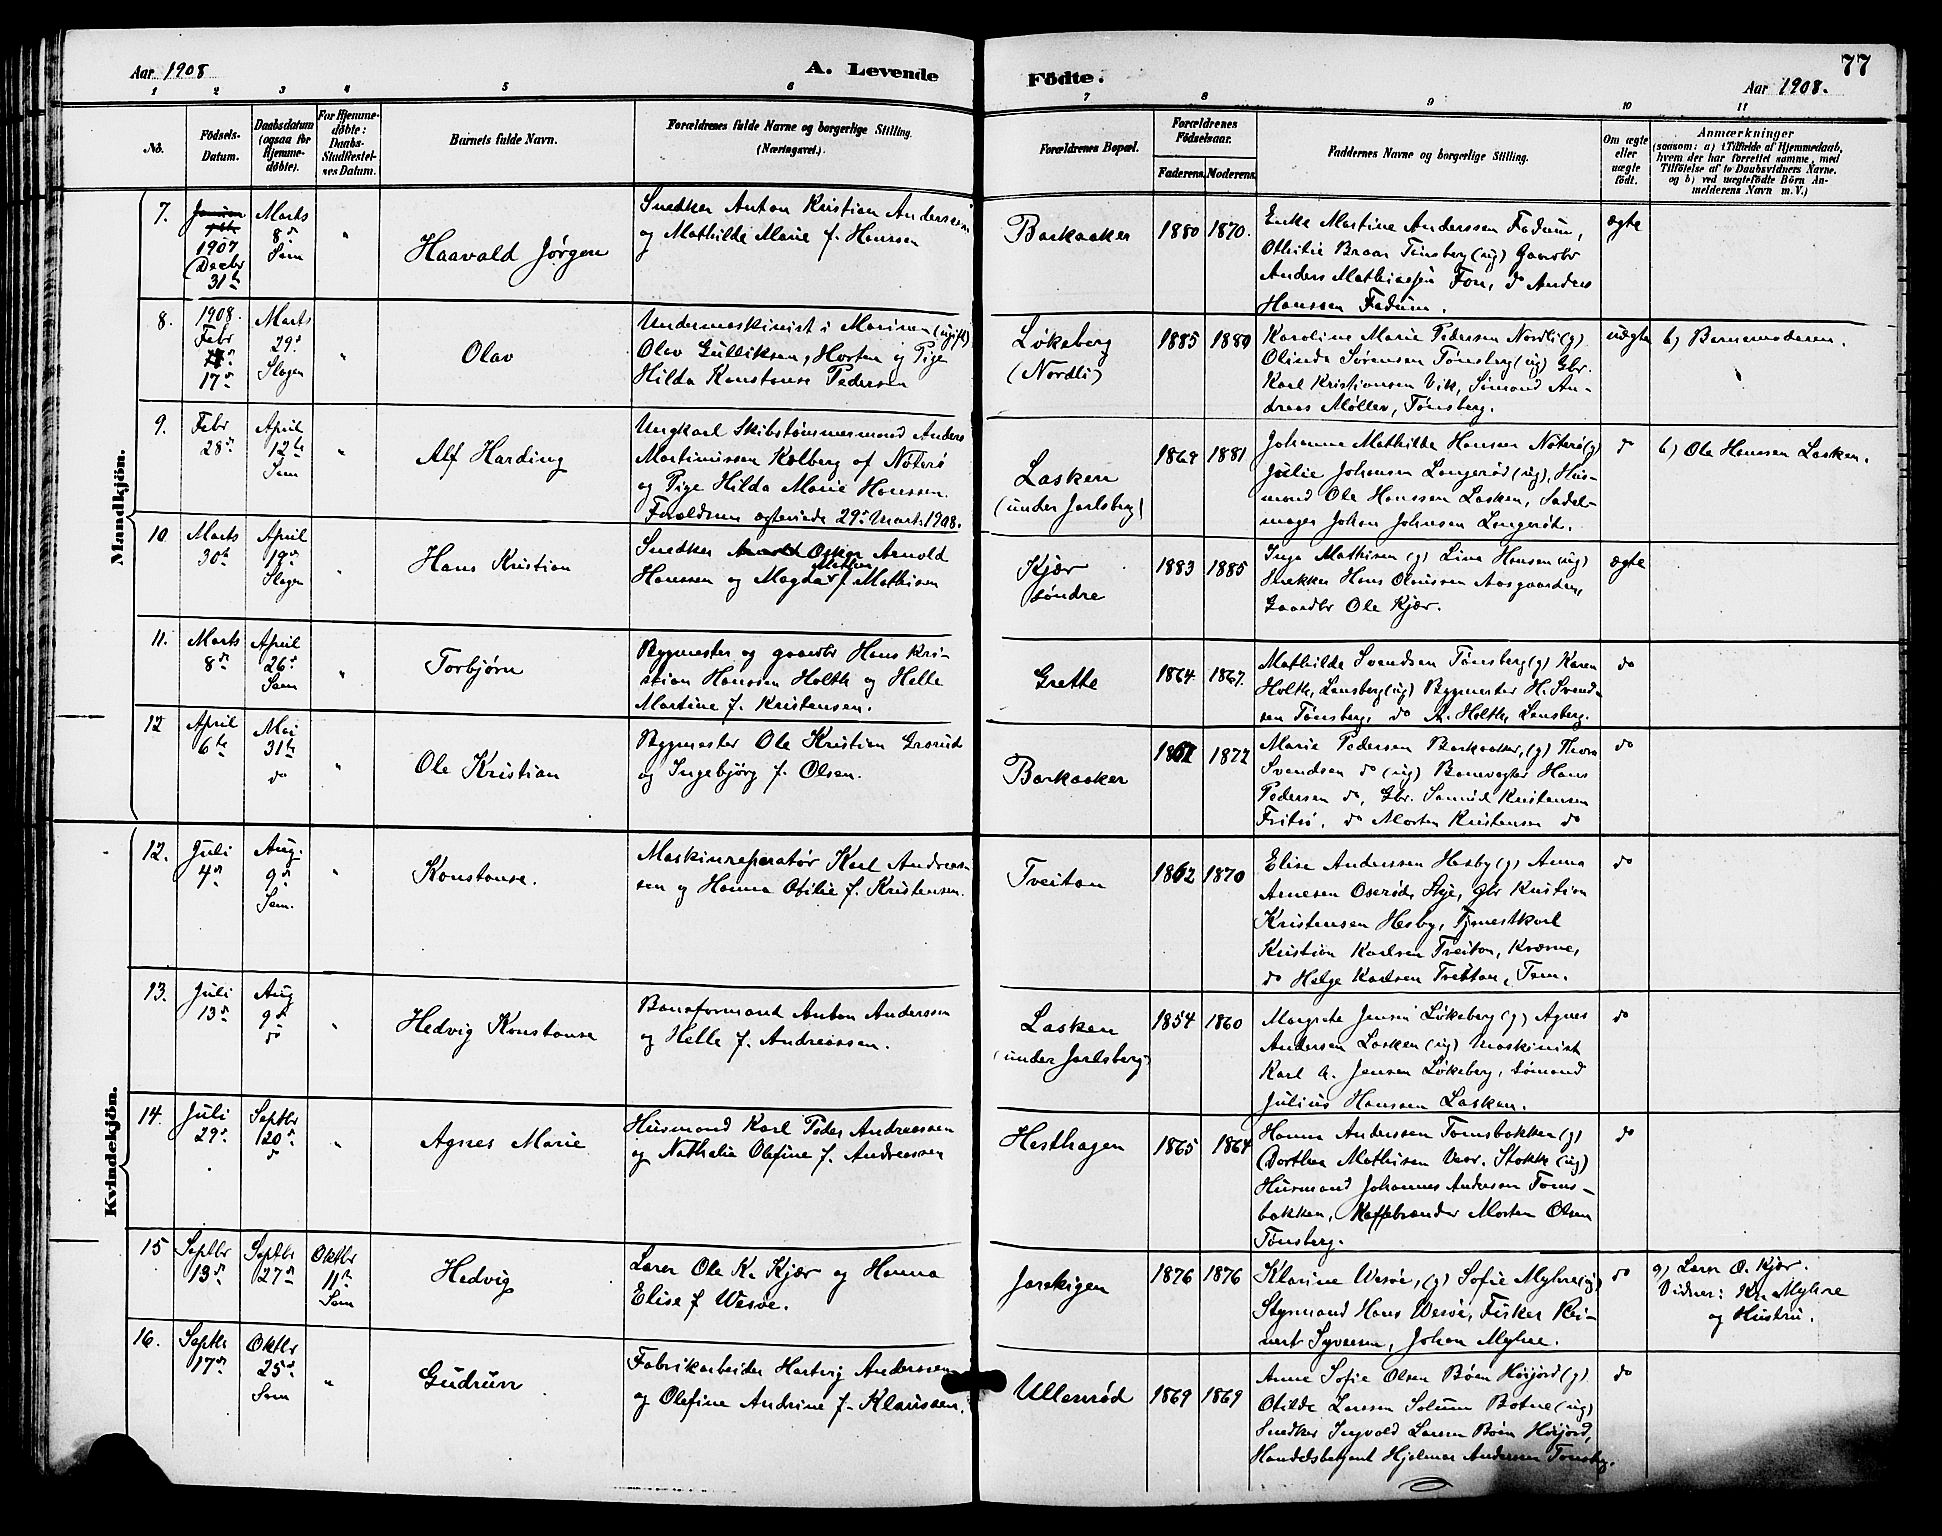 Aar 1908
A. Levende
Födte.
77
Aar 1908.
1 2 3 4 5 6 7 8 9 10 11
No.
Födsels-
Datum.
Daabsdatum
(ogsaa för
Hjemme-
døbte).
For Hjemme-
døbte:
Daabs-
Stadfæstel-
ses Datum.
Barnets fulde Navn.
Forældrenes fulde Navne og borgerlige Stilling.
(Næringsvei.)
Forældrenes Bopæl.
Forældrenes
Födselsaar.
Faderens.
Moderens.
Faddernes Navne og borgerlige Stilling.
Om ægte
eller
uægte
født.
Anmærkninger
(saasom: a) i Tilfælde af Hjemmedaab,
hvem der har forrettet samme, med
Tilföielse af to Daabsvidners Navne.
og b) ved uægtefödte Börn An-
melderens Navn m. V.)
Mandkjön.
7.
1907
Decbr
31te
Marts
8de
Sem
"
Haavald Jørgen
Snedker Anton Kristian Anderssen
og Mathilde Marie f. Hanssen
Barkaaker
1880
1870.
Enke Martine Anderssen Fadum,
Othilie Braar Tønsberg (ug) Gaardbr
Anders Mathiassen Fon, do Anders
Hanssen Fadum.
ægte
8.
1908.
Febr
17de
Marts
29de
Slagen
"
Olav
Undermaskinist i Marinen (ugift)
Olav Gulliksen, Horten og Pige
Hilda Konstanse Pedersen
Løkeberg
(Nordli)
1885
1880
Karoline Marie Pedersen Nordli (g)
Olinde Sørensen Tønsberg (ug) Gbr.
Karl Kristiansen Vik, Sømand An-
dreas Møller, Tønsberg.
uægte
b) Barnemoderen.
9.
Febr
28de
April
12te
Sem
"
Alf Harding
Ungkarl Skibstømmermand Anders
Martinussen Kolberg af Nøterø
og Pige Hilda Marie Hanssen.
Forældrene ægteviede 29de Marts 1908.
Lasken
(under Jarlsberg)
1869
1881
Johanne Mathilde Hansen Nøterø (g)
Julie Johansen Langerød (ug), Hus-
mand Ole Hanssen Lasken, Sadel-
mager Johan Johnesen Langerød.
do
b) Ole Hanssen Lasken.
10
Marts
30te
April
19de
Slagen
"
Hans Kristian
Snedker Oskar Arnold
Hanssen og Magda Mathea f. Mathisen
Kjær
søndre
1883
1885
Inga Mathisen (g) Lina Hansen (ug)
Snekker Hans Olaussen Aasgaarden,
Gaardbr Ole Kjær.
ægte
11.
Marts
8de
April
26de
Sem
"
Torbjørn
Bygmester og gaardbr Hans Kri-
stian Hanssen Holth og Helle
Martine f. Kristensen.
Grette
1864
1867.
Mathilde Svendsen Tønsberg (g) Karen
Holth, Lensberg (ug) Bygmester H. Svend-
sen Tønsberg, do A. Holth, Lensberg.
do
12
April
6te
Mai
31te
do
"
Ole Kristian
Bygmester Ole Kristian Grorud
og Ingebjørg f. Olsen.
Barkaaker
1872
Marie Pedersen Barkaaker, (g) Thora
Svendsen do (ug) Banevogter Hans
Pedersen do, Gbr. Samuel Kristensen
Fritsø, do Morten Kristensen do
do
Kvindekjön.
12.
Juli
4de
Aug.
9de
Sem.
"
Konstanse.
Maskinreparatør Karl Andreas-
sen og Hanna Otilie f. Kristensen.
Tveiton
1862
1870
Elise Anderssen Hesby (g) Anna
Arnesen Oserød, Skje, gbr Kristian
Kristensen Hesby, Tjenestkarl
Kristian Karlsen Treiton, Kværne,
do Helge Karlsen Treiton, Sem.
do
13.
Juli
13de
Aug
9de
do
"
Hedvig Konstanse
Baneformand Anton Andersen
og Helle f. Andreassen.
Lasken
(under Jarlsberg)
1854
1860
Margrete Jensen Løkeberg (g) Agnes
Andersen Lasken (ug) Maskinist
Karl A. Jensen Løkeberg, Sømand
Julius Hanssen Lasken.
do
14.
Juli
29de
Septbr
20de
do
"
Agnes Marie
Husmand Karl Peder Andreassen
og Nathalia Olefine f. Andreassen
Hesthagen
1865
1864
Hanna Anderssen Tomsbakken (g)
Dorthea Mathisen Vear. Stokke (ug)
Husmand Johannes Andersen Toms-
bakken, Kaffebrander Morten Olsen
Tønsberg.
do
15
Septbr
13de
Septbr
27de
Oktbr
11te
Sem
Hedvig
Lærer Ole K. Kjær og Hanna
Elise f Wesøe.
Jareteigen
1876
1876
Klarine Wesøe, (g) Sofie Myhre (ug)
Styrmand Hans Wesøe, Fisker Rei-
nert Syversen, Johan Myhre.
do
a) Lærer O. Kjær.
Vidner: Kr. Myhre
og Hustru.
16.
Septbr
17de
Oktbr
25de
Sem
"
Gudrun
Fabrikarbeider Hartvig Anderssen
og Olefine Andrine f. Klaussen.
Ullenrød
1869
1869
Anna Sofie Olsen Bøen Hørjord (g)
Otilde Larsen Solum Botne (ug)
Snedker Ingvald Larsen Bøen Hørjord,
Handelsbetjent Hjalmar Andersen Tønsberg.
do